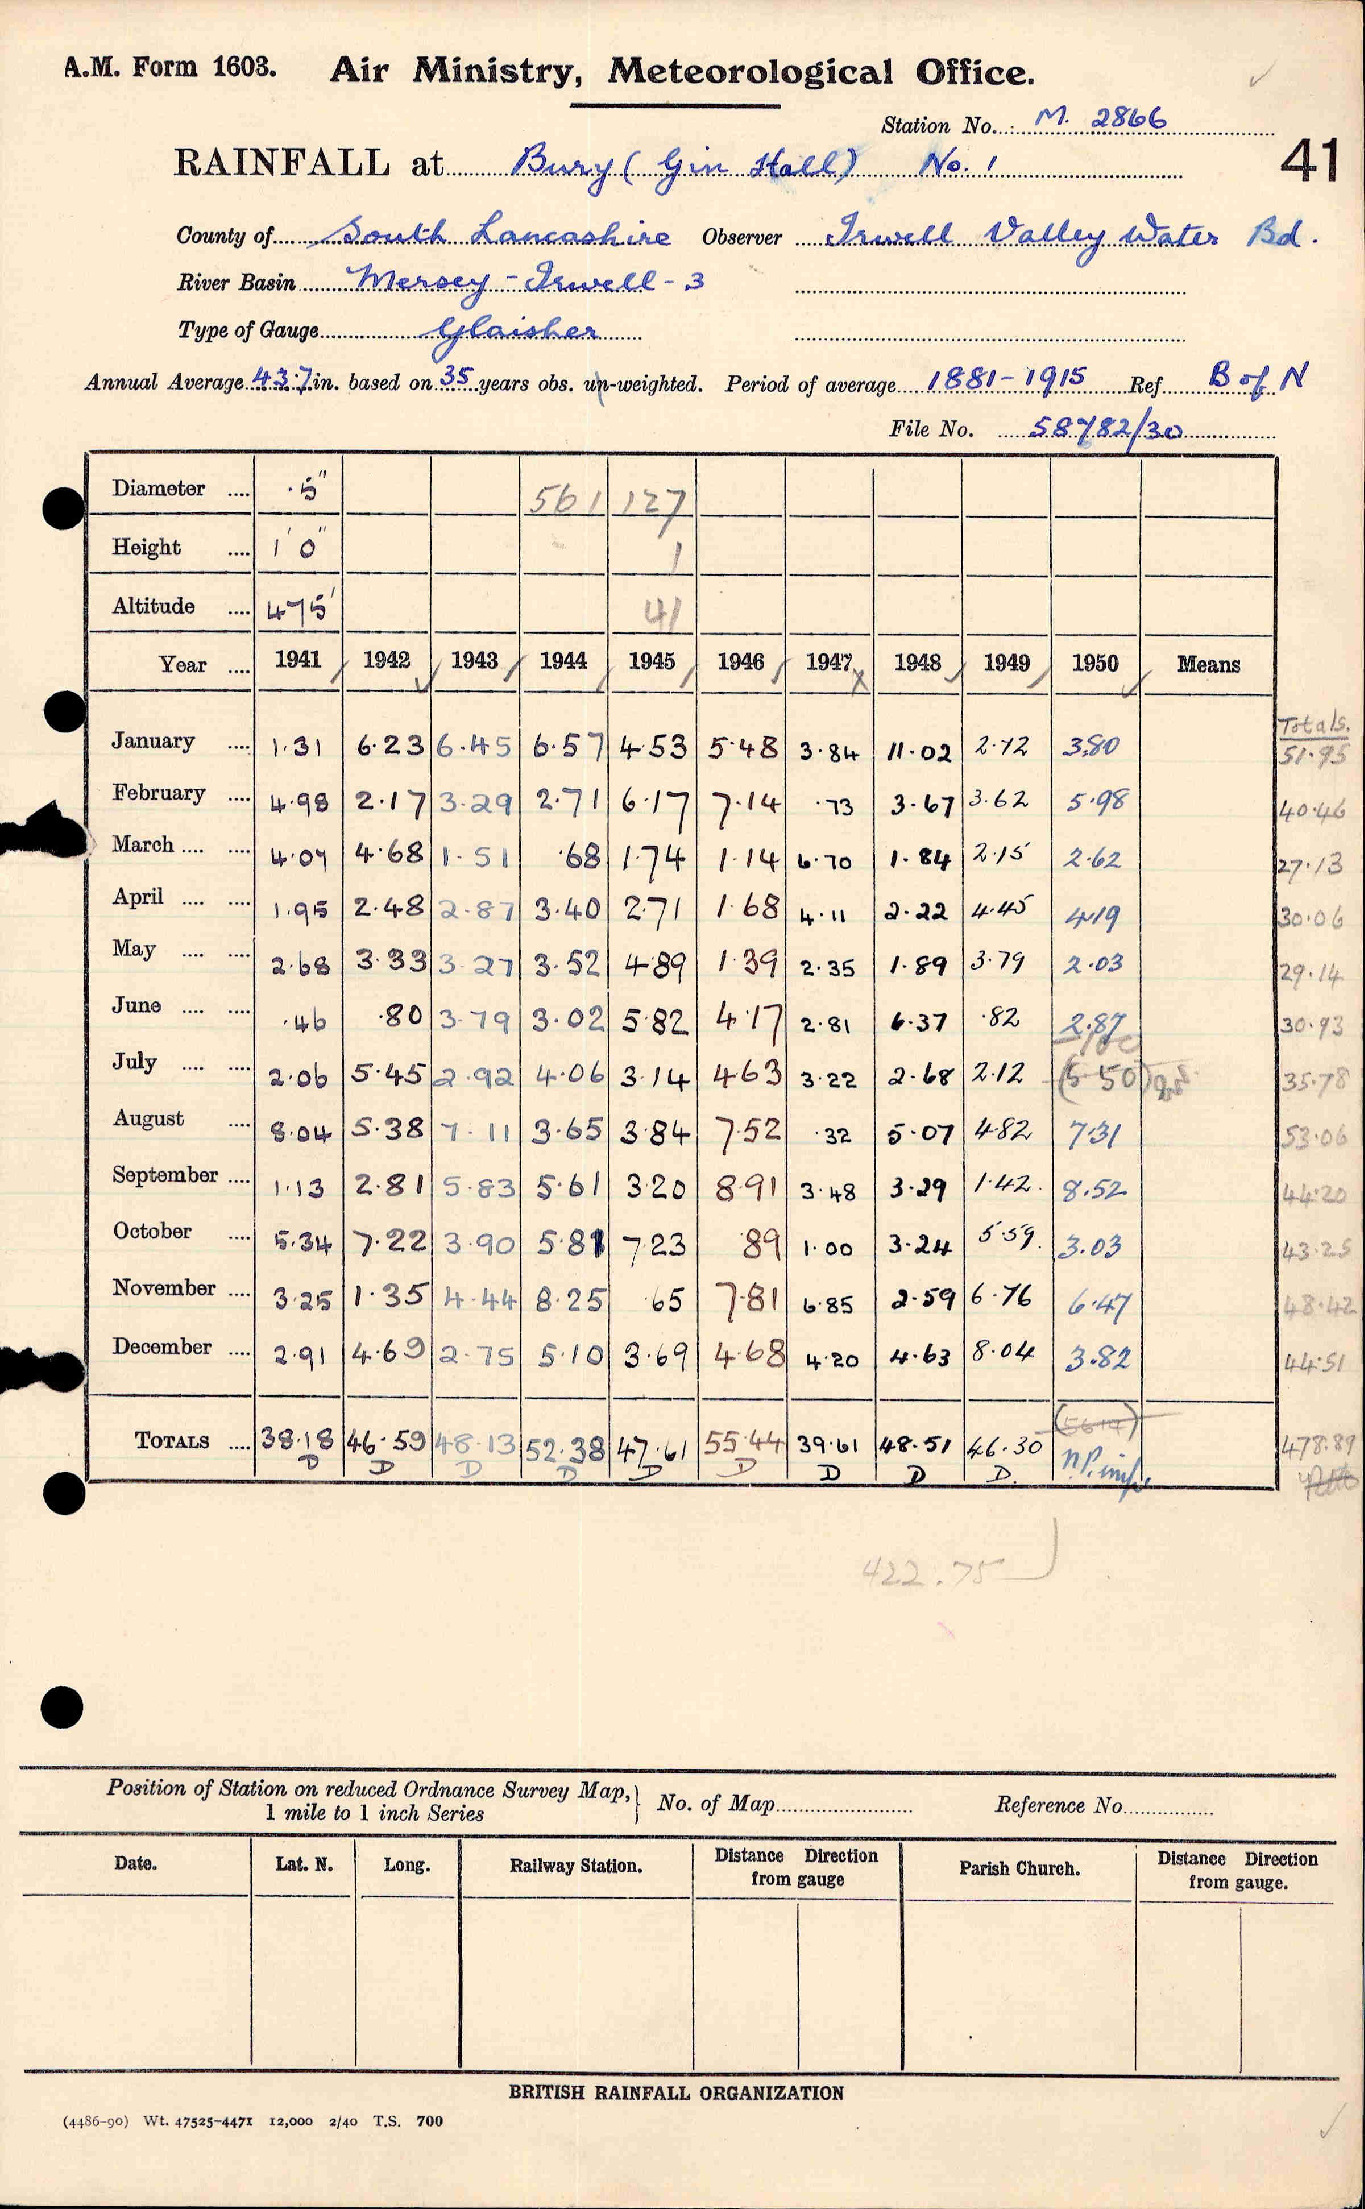 A.M. Form 1603. Air Ministry, Meteorological Office.
Station No. M. 2866
RAINFALL at Bury (Gin Hall) No. 1 41
County of South Lancashire Observer Irwell Valley Water Bd.
River Basin Mersey - Irwell - 3
Type of Gauge Glaisher
Annual Average 43.7 in. based on 35 years obs. un-weighted. Period of average 1881-1915 Ref. B of N
File No. 58782/30
Diameter .... 5" 561 127
Height .... 1' 0" 1
Altitude .... 475' 41
Year .... 1941 1942 1943 1944 1945 1946 1947 1948 1949 1950 Means
Totals.
January .... 1.31 6.23 6.45 6.57 4.53 5.48 3.84 11.02 2.72 3.80 51.95
February .... 4.98 2.17 3.29 2.71 6.17 7.14 .73 3.67 3.62 5.98 40.46
March .... .... 4.07 4.68 1.51 .68 1.74 1.14 6.70 1.84 2.15 2.62 27.13
April .... .... 1.95 2.48 2.87 3.40 2.71 1.68 4.11 2.22 4.45 4.19 30.06
May .... .... 2.68 3.33 3.27 3.52 4.89 1.39 2.35 1.89 3.79 2.03 29.14
June .... .... .46 .80 3.79 3.02 5.82 4.17 2.81 6.37 .82 2.87 30.93
July .... .... 2.06 5.45 2.92 4.06 3.14 4.63 3.22 2.68 2.12 (5.50) 35.78
August .... 8.04 5.38 7.11 3.65 3.84 7.52 .32 5.07 4.82 7.31 53.06
September .... 1.13 2.81 5.83 5.61 3.20 8.91 3.48 3.29 1.42 8.52 44.20
October .... 5.34 7.22 3.90 5.81 7.23 .89 1.00 3.24 5.59 3.03 43.25
November .... 3.25 1.35 4.44 8.25 .65 7.81 6.85 2.59 6.76 6.47 48.42
December .... 2.91 4.69 2.75 5.10 3.69 4.68 4.20 4.63 8.04 3.82 44.51
TOTALS .... 38.18 46.59 48.13 52.38 47.61 55.44 39.61 48.51 46.30 (56.14) 478.89
D D D D D D D D D.
422.75
Position of Station on reduced Ordnance Survey Map, 1 mile to 1 inch Series } No. of Map Reference No.
Date. Lat. N. Long. Railway Station. Distance Direction from gauge Parish Church. Distance Direction from gauge.
BRITISH RAINFALL ORGANIZATION
(4486-90) Wt. 47525-4471 12,000 2/40 T.S. 700